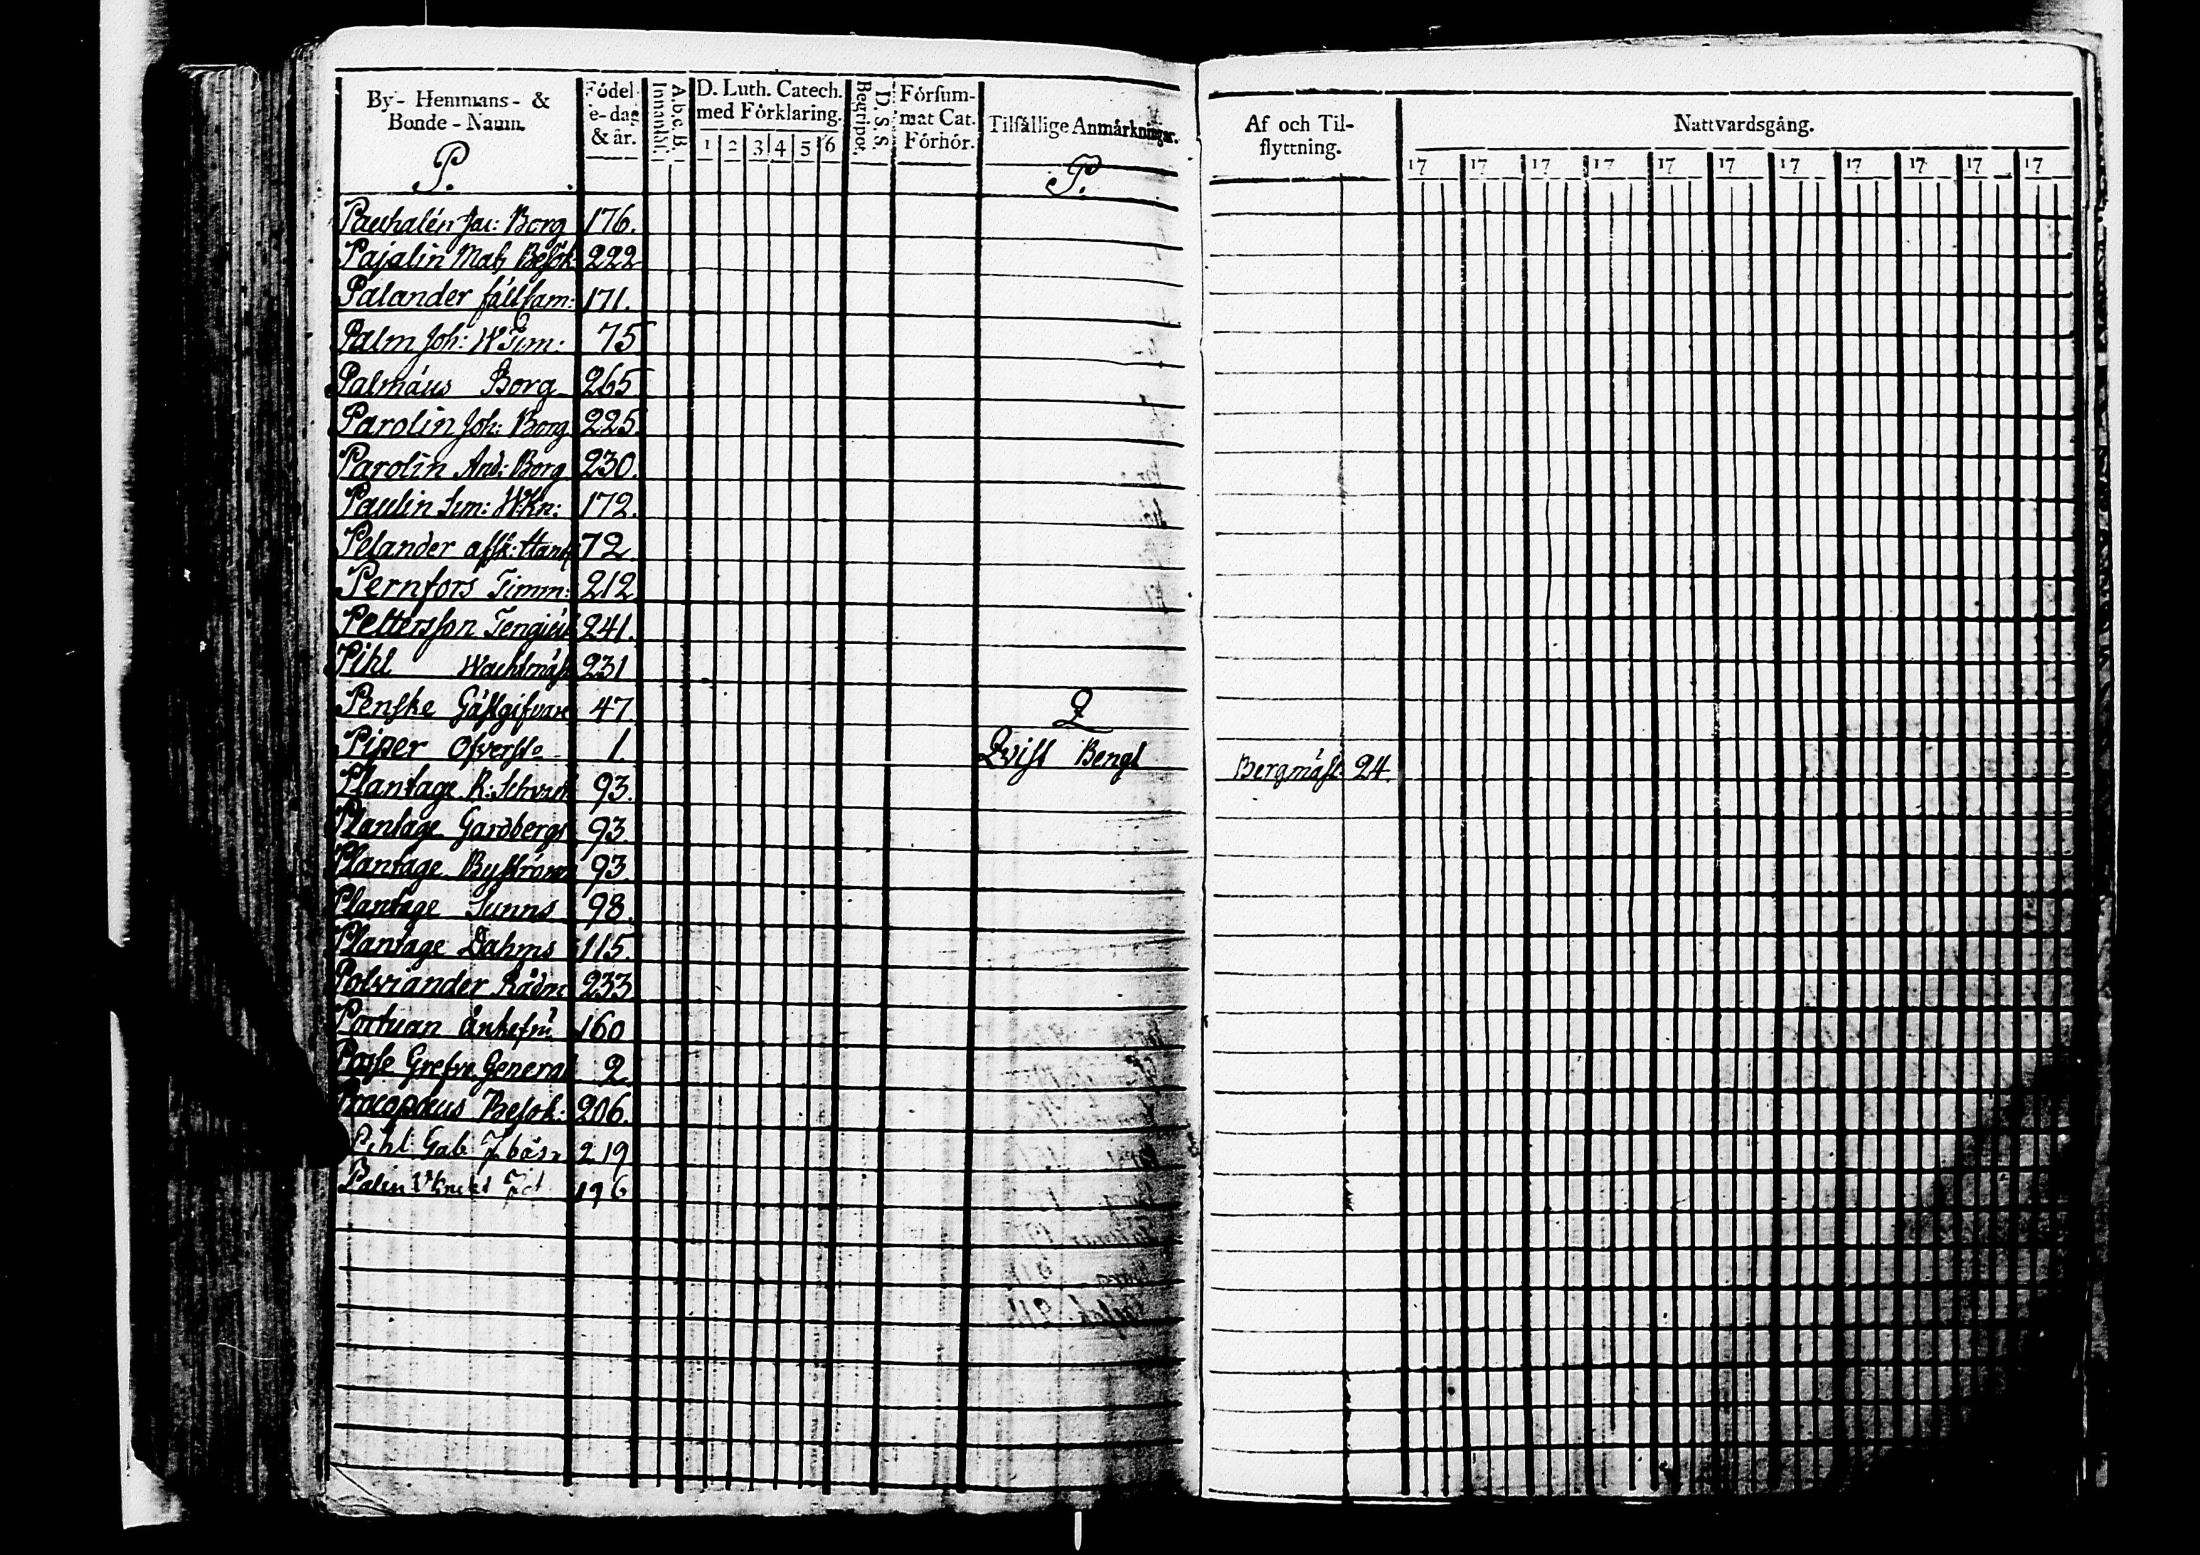 By- Hemmans- &
Bonde-Namn.
P.
Födel
e-dag
& år.
A.b.c.B.
Innantil.
D. Luth. Catech.
med Förklaring.
1 2 3 4 5 6
D. S. S.
Begripet.
Förfum-
mat Cat.
Förhör.
Tilfällige Anmärkningar.
P.
Pauhalén Jac: Borg 176.
Pajalin Mats Besök 222
Palander fältkam: 171.
Palm Joh: 75
Palmäus Borg 265
Parolin Joh: Borg 225.
Parolin And: Borg 230.
Paulin Sim: W:Kn: 172.
Pelander 72
Pernfors Timm: 212
Pettersson 241.
Pihl Wachtmäst 231
Penske Gästgifvare 47.
Piper Öfverste 1.
Plantage R: 93.
Plantage Gardbergs 93.
Plantage Byströms 93
Plantage Sunns 98.
Plantage Dahms 115.
Polviander Rådm 233
Portuan änkefru 160
Posse Grefve General 2.
Procopæus Besök: 206.
Pihl Gab 219
Palin 196
Q
Qvist Bengt
Af och Til-
flyttning.
Bergmäst: 24.
Nattvardsgång.
17 17 17 17 17 17 17 17 17 17 17